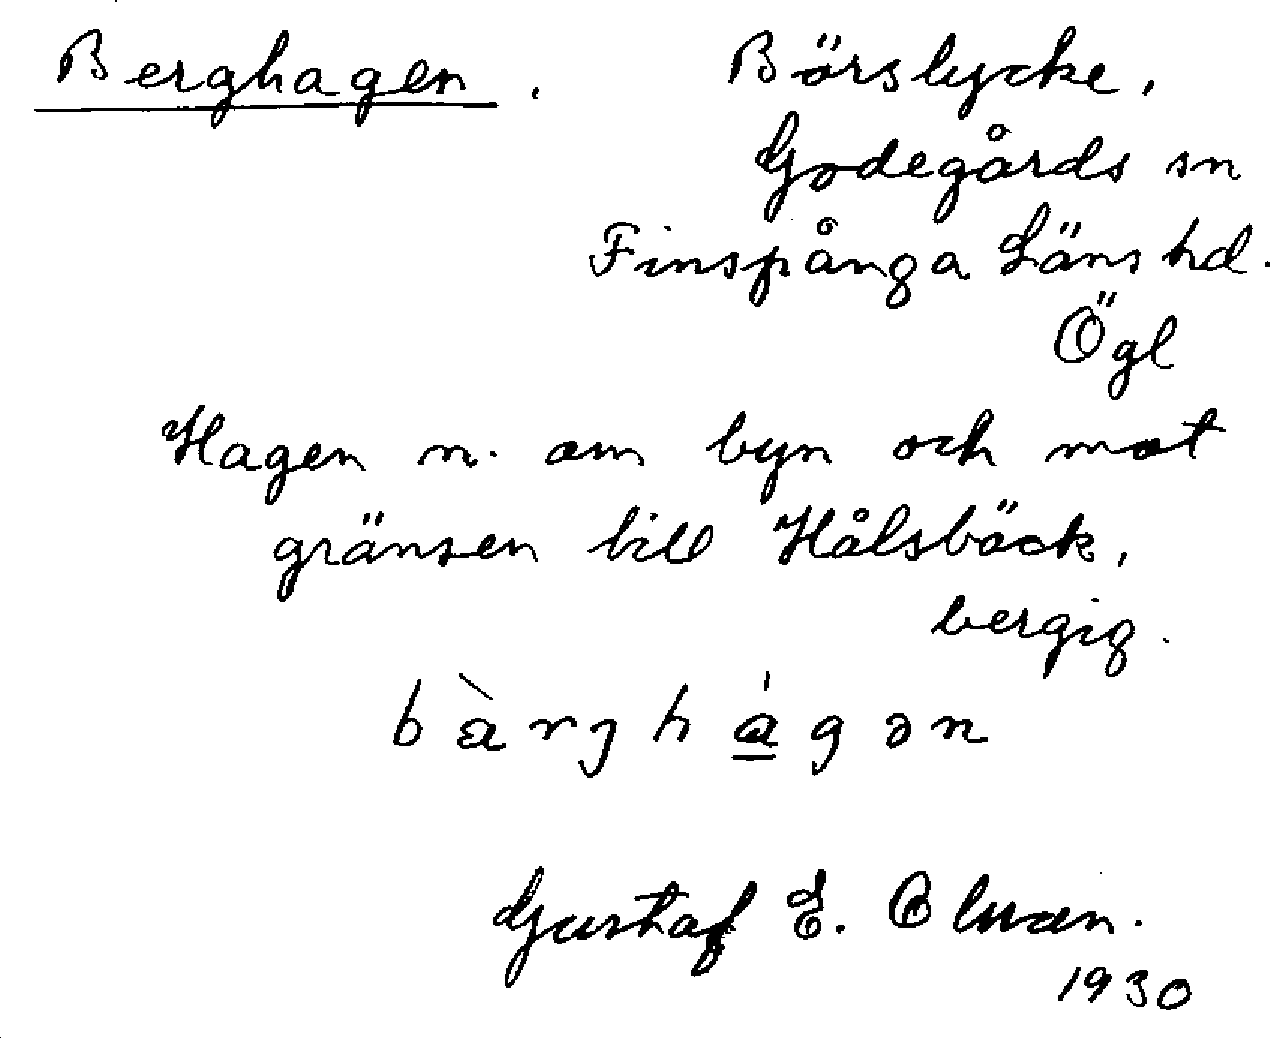 Berghagen. Börslycke,
Godegårds sn
Finspånga Läns hd.
Ögl
Hagen n. om byn och mot
gränsen till Hålsbäck,
bergig.
bàrghágən
Gustaf E.
1930